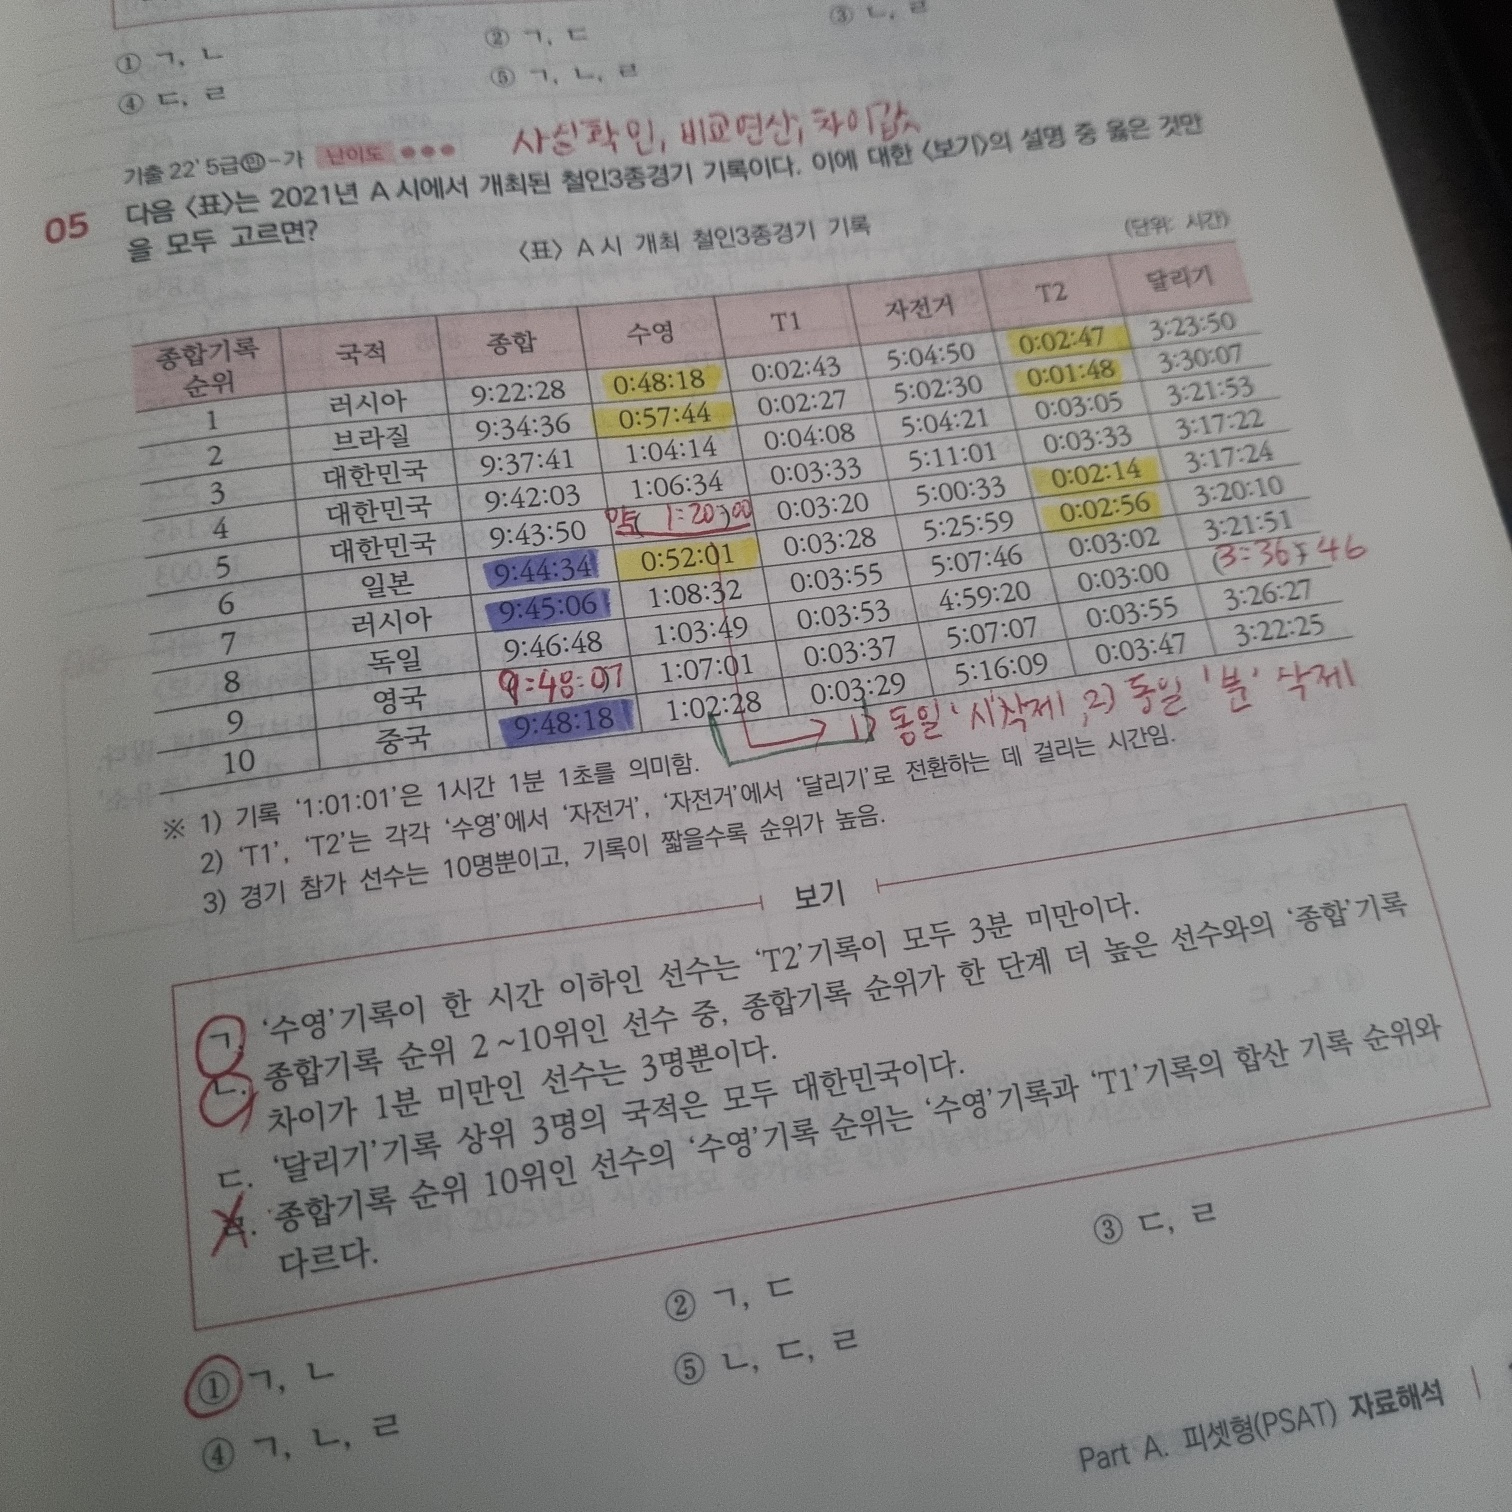 ① ㄱ, ㄴ
② ㄱ, ㄷ
③ ㄴ, ㄹ
④ ㄷ, ㄹ
⑤ ㄱ, ㄴ, ㄹ
사실확인, 비교연산, 차이값
기출 22' 5급㉯-가 난이도 ●●●
05 다음 〈표〉는 2021년 A시에서 개최된 철인3종경기 기록이다. 이에 대한 〈보기〉의 설명 중 옳은 것만
을 모두 고르면?
〈표〉 A시 개최 철인3종경기 기록
(단위: 시간)
종합기록 순위 국적 종합 수영 T1 자전거 T2 달리기
1 러시아 9:22:28 0:48:18 0:02:43 5:04:50 0:02:47 3:23:50
2 브라질 9:34:36 0:57:44 0:02:27 5:02:30 0:01:48 3:30:07
3 대한민국 9:37:41 1:04:14 0:04:08 5:04:21 0:03:05 3:21:53
4 대한민국 9:42:03 1:06:34 0:03:33 5:11:01 0:03:33 3:17:22
5 대한민국 9:43:50 약( 1:20:00 ) 0:03:20 5:00:33 0:02:14 3:17:24
6 일본 9:44:34 0:52:01 0:03:28 5:25:59 0:02:56 3:20:10
7 러시아 9:45:06 1:08:32 0:03:55 5:07:46 0:03:02 3:21:51
8 독일 9:46:48 1:03:49 0:03:53 4:59:20 0:03:00 (3:36:46
9 영국 9:48:07 1:07:01 0:03:37 5:07:07 0:03:55 3:26:27
10 중국 9:48:18 1:02:28 0:03:29 5:16:09 0:03:47 3:22:25
1) 동일 '시'삭제, 2) 동일 '분' 삭제
※ 1) 기록 '1:01:01'은 1시간 1분 1초를 의미함.
2) 'T1', 'T2'는 각각 '수영'에서 '자전거', '자전거'에서 '달리기'로 전환하는 데 걸리는 시간임.
3) 경기 참가 선수는 10명뿐이고, 기록이 짧을수록 순위가 높음.
보기
ㄱ. '수영'기록이 한 시간 이하인 선수는 'T2'기록이 모두 3분 미만이다.
ㄴ. 종합기록 순위 2~10위인 선수 중, 종합기록 순위가 한 단계 더 높은 선수와의 '종합'기록
차이가 1분 미만인 선수는 3명뿐이다.
ㄷ. '달리기'기록 상위 3명의 국적은 모두 대한민국이다.
ㄹ. 종합기록 순위 10위인 선수의 '수영'기록 순위는 '수영'기록과 'T1'기록의 합산 기록 순위와
다르다.
① ㄱ, ㄴ
② ㄱ, ㄷ
③ ㄷ, ㄹ
④ ㄱ, ㄴ, ㄹ
⑤ ㄴ, ㄷ, ㄹ
Part A. 피셋형(PSAT) 자료해석